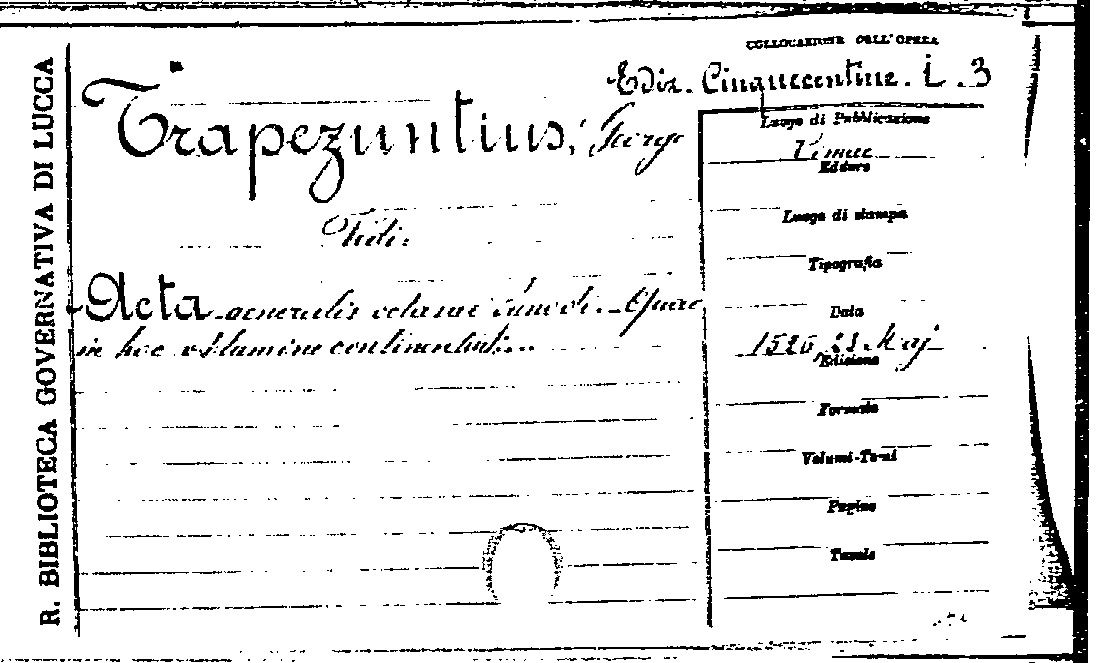 R. BIBLIOTECA GOVERNATIVA DI LUCCA
COLLOCAZIONE DELL'OPERA
Ediz. Cinquecentine. i. 3
Trapezuntius, George
Vidi:
Acta generalis octavae Sinodi. Quae
in hoc volumine continentur...
Luogo di Pubblicazione
Editore
Luogo di stampa
Tipografia
Data
1526, 23 Maj
Edizione
Formato
Volumi-Tomi
Pagine
Tavole